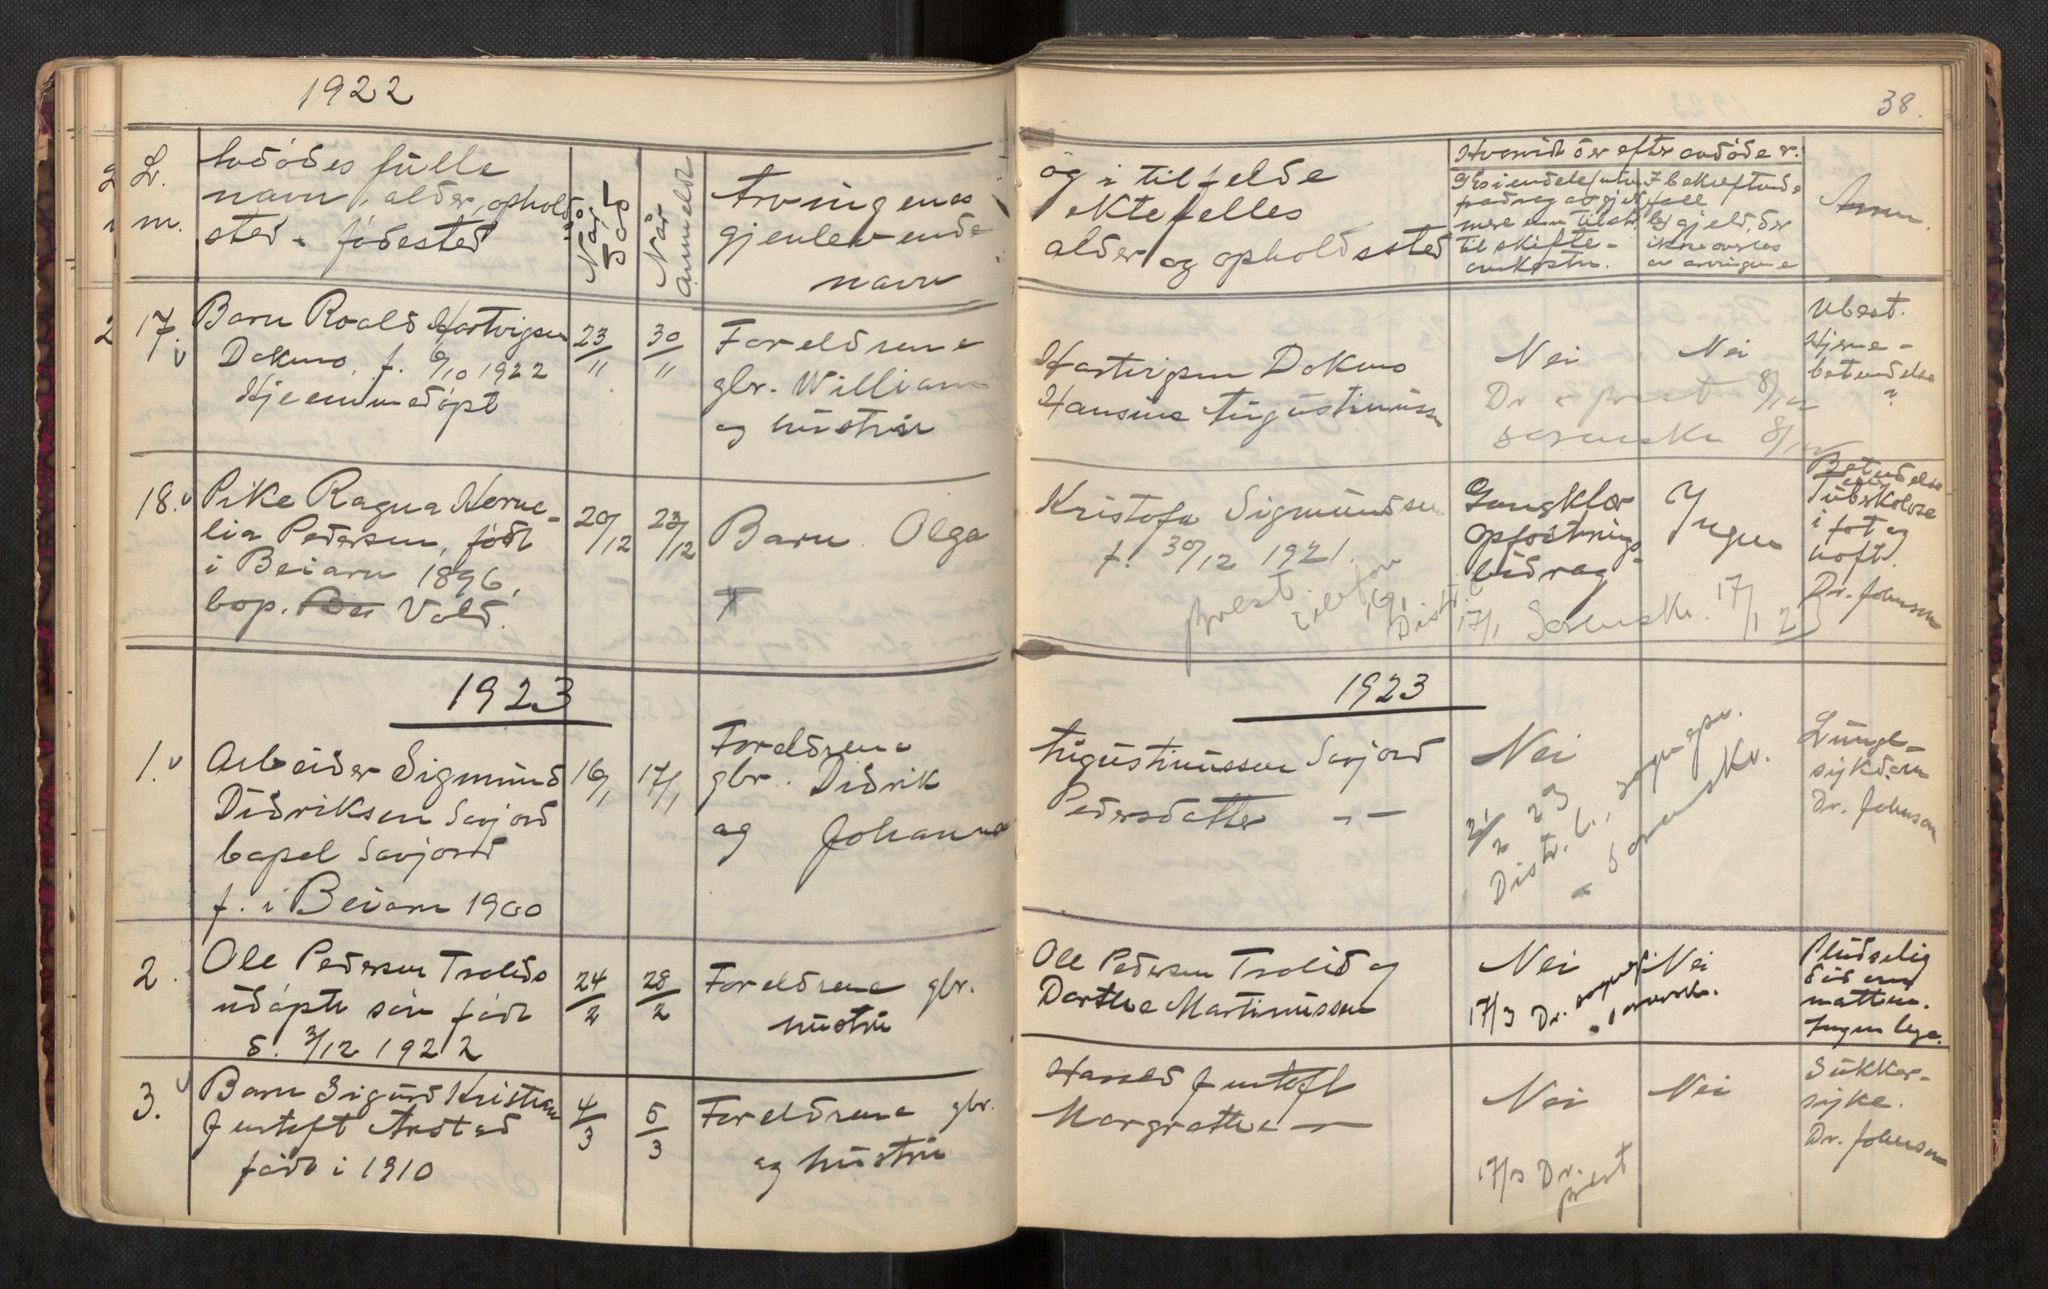 1922
38.
L.
m.
Avdødes fulle
navn, alder, ophold
sted & fødested
Når
død
Når
anmeldt
Arvingenes
gjenlevende
navn
og i tilfelde
ektefelles
alder og opholdssted
Hvorvidt der efter avdøde er:
til skifte-
omkostn.
gjeld, der
ikke overtas
av arvingene
Anm.
17.
Barn Roald Hartvigsen
Dokmo, f. 6/10 1922
Hjemmedøpt
23/11
30/11
Foreldrene
gbr. William
og hustru
Hartvigsen Dokmo
Hansine Augustinussen
Nei
Nei
Dr & prest 8/12
Sorenskr 8/12
Ubest.
Hjerne-
betendelse
?
18.
Pike Ragna Korne-
lia Pedersen, født
i Beiarn 1896,
bop. Vold.
20/12
23/12
Barn Olga
Kristofa Sigmundsen
f. 30/12 1921.
prest
telefon
16/1
Distr. l.
17/1 Sorenskr. 17/1 23
Gangklær
opfostrings-
bidrag
Ingen
Betendelse
Tuberkulose
i fot og
hoft.
Dr. Johnson
1923
1923
1.
Arbeider Sigmund
Didriksen Savjord
bopel Savjord
f. i Beiarn 1900
16/1
17/1
Foreldrene
gbr. Didrik
og Johanna
Augustinussen Savjord
Pedersdatter -"-
Nei
2/2 23
Distr. l., sognepr.
" sorenskr.
Lunge-
sykdom
Dr. Johnson
2.
Ole Pedersen Trolids
udøpte søn født
d. 3/12 1922
24/2
28/2
Foreldrene gbr.
hustru
Ole Pedersen Trolid og
Dorthea Martinussen
Nei
Nei
17/3 Dr. sognepr.
" sorenskr.
Pludselig
død om
natten.
Ingen lege.
3.
Barn Sigurd Kristian
Jentoft Arstad
født i 1910
4/3
5/3
Foreldrene gbr.
og hustru
Harald Jentoft
Margrethe
Nei
Nei
17/3 Dr.
prest
Sukker-
syke.
Dr. Johnson